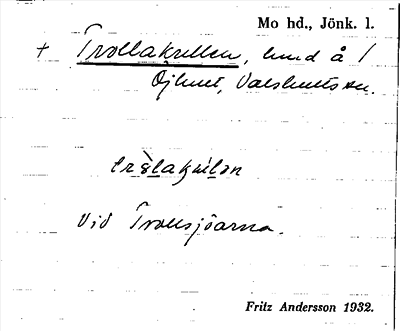 Mo hd., Jönk. l.
+ Trollakullen, lund å 1
Öjhult, Valshults sn.
trȯ̀lakulən
Vid Trollsjöarna.
Fritz Andersson 1932.